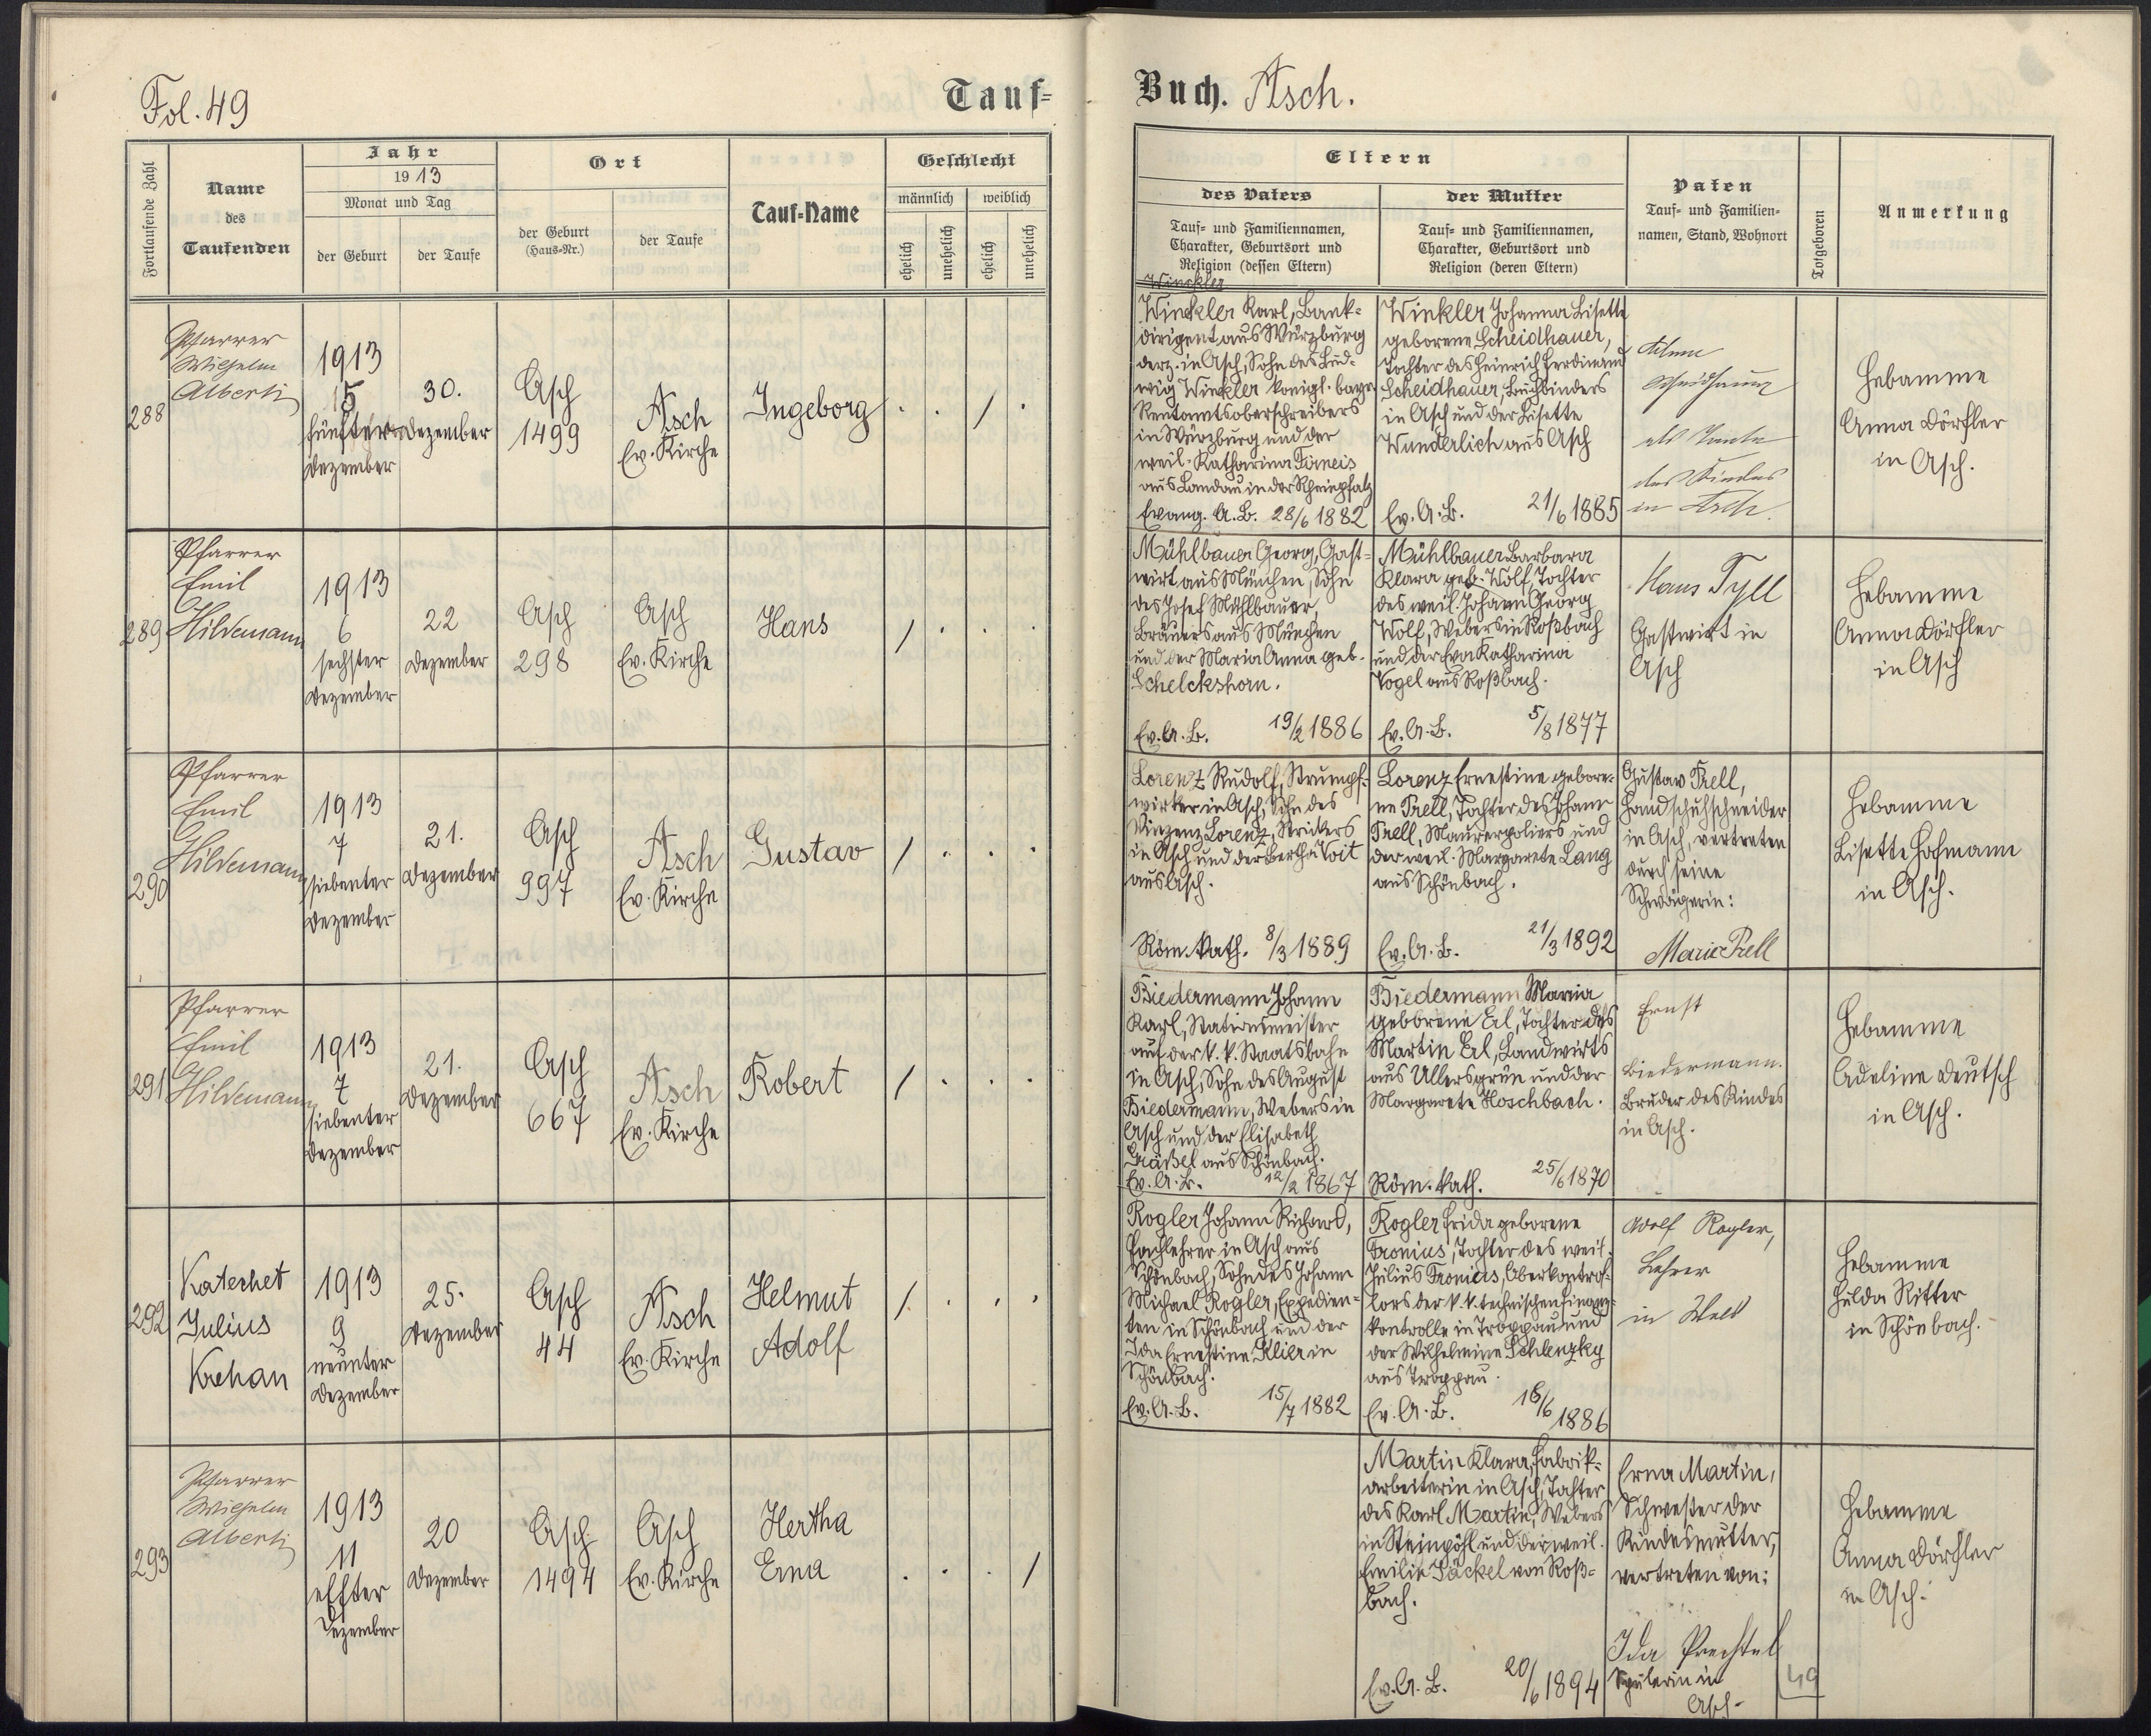 Fol. 49
Tauf=
Buch. Asch.
Fortlaufende Zahl
Name
des
Taufenden
Jahr
1913
Monat und Tag
der Geburt
der Taufe
Ort
der Geburt
(Haus-Nr.)
der Taufe
Tauf-Name
Geschlecht
männlich
weiblich
ehelich
unehelich
ehelich
unehelich
Eltern
des Vaters
Tauf- und Familiennamen,
Charakter, Geburtsort und
Religion (dessen Eltern)
der Mutter
Tauf- und Familiennamen,
Charakter, Geburtsort und
Religion (deren Eltern)
Paten
Tauf- und Familien-
namen, Stand, Wohnort
Totgeboren
Anmerkung
288
Pfarrer
Wilhelm
Alberti
1913
5
fünfter
Dezember
30.
Dezember
Asch
1499
Asch
Ev. Kirche
Ingeborg
Winckler
Winckler Karl, Bank-
dirigent aus Würzburg
derz. in Asch, Sohn des Lud-
wig Winckler königl. bayr.
Rentamtsoberschreibers
in Würzburg und der
weil. Katharina
aus Landau in der Rheinpfalz
Evang. A.B. 28/6 1882
Winkler Johanna Lisette
geborene Scheidhauer,
Tochter des Heinrich Ferdinand
Scheidhauer, Buchbinders
in Asch und der Lisette
Wunderlich aus Asch
Ev. A. B. 21/6 1885
als Tante
des Kindes
in Asch.
Hebamme
Anna Dörfler
in Asch.
289
Pfarrer
Emil
Hildemann
1913
6
sechster
Dezember
22
Dezember
Asch
298
Asch
Ev. Kirche
Hans
Mühlbauer Georg, Gast-
wirt aus München, Sohn
des Josef Mühlbauer,
Bräuers aus München
und der Maria Anna geb.
Schelckshorn.
Ev. A. B. 19/2 1886
Mühlbauer Barbara
Klara geb. Wolf, Tochter
des weil. Johann Georg
Wolf, Webers in Roßbach
und der Eva Katharina
Vogel aus Roßbach.
Ev. A. B. 5/8 1877
Hans Tyll
Gastwirt in
Asch
Hebamme
Anna Dörfler
in Asch
290
Pfarrer
Emil
Hildemann
1913
7
siebenter
Dezember
21.
Dezember
Asch
997
Asch
Ev. Kirche
Gustav
Lorenz Rudolf, Strumpf-
wirker in Asch, Sohn des
Vinzenz Lorenz, Strickers
in Asch und der Bertha Voit
aus Asch.
Röm. kath. 8/3 1889
Lorenz Ernestine gebore-
ne Prell, Tochter des Johann
Prell, Maurerpoliers und
der weil. Margarete Lang
aus Schönbach.
Ev. A. B. 21/3 1892
Gustav Prell,
Handschuhschneider
in Asch, vertreten
durch seine
Schwägerin:
Marie Prell
Hebamme
Lisette Hofmann
in Asch.
291
Pfarrer
Emil
Hildemann
1913
7
siebenter
Dezember
21.
Dezember
Asch
667
Asch
Ev. Kirche
Robert
Biedermann Johann
Karl, Stationsmeister
auf der k. k. Staatsbahn
in Asch, Sohn des August
Biedermann, Webers in
Asch und der Elisabeth
aus Schönbach.
Ev. A. B. 12/2 1867
Biedermann Maria
geborene Erl, Tochter des
Martin Erl, Landwirts
aus Ullersgrün und der
Margarete Hoschbach.
Röm. kath. 25/6 1870
Ernst
Biedermann.
Bruder des Kindes
in Asch.
Hebamme
Adeline Deutsch
in Asch.
292
Katechet
Julius
Krehan
1913
9
neunter
Dezember
25.
Dezember
Asch
44
Asch
Ev. Kirche
Helmut
Adolf
Rogler Johann Richard,
Fachlehrer in Asch aus
Schönbach, Sohn des Johann
Michael Rogler, Expedien-
ten in Schönbach und der
Ida Ernestine Klier in
Schönbach.
Ev. A. B. 15/7 1882
Rogler Frida geborene
Fronius, Tochter des weil.
Julius Fronius, Oberkontrol-
lors der k. k. technischen Finanz-
kontrolle in Troppau und
der Wilhelmine Schlenzky
aus Troppau.
Ev. A. B. 16/6 1886
Adolf Rogler,
Lehrer
in
Hebamme
Hulda Ritter
in Schönbach.
293
Pfarrer
Wilhelm
Alberti
1913
11
elfter
Dezember
20
Dezember
Asch
1494
Asch
Ev. Kirche
Hertha
Erna
Martin Klara, Fabrik-
arbeiterin in Asch, Tochter
des Karl Martin, Webers
in Steinpöhl und der weil.
Emilie Säckel von Roß-
bach.
Ev. A. B. 20/6 1894
Erna Martin,
Schwester der
Kindesmutter,
vertreten von:
Ida Prechtel
Spulerin in
Asch.
Hebamme
Anna Dörfler
in Asch.
49